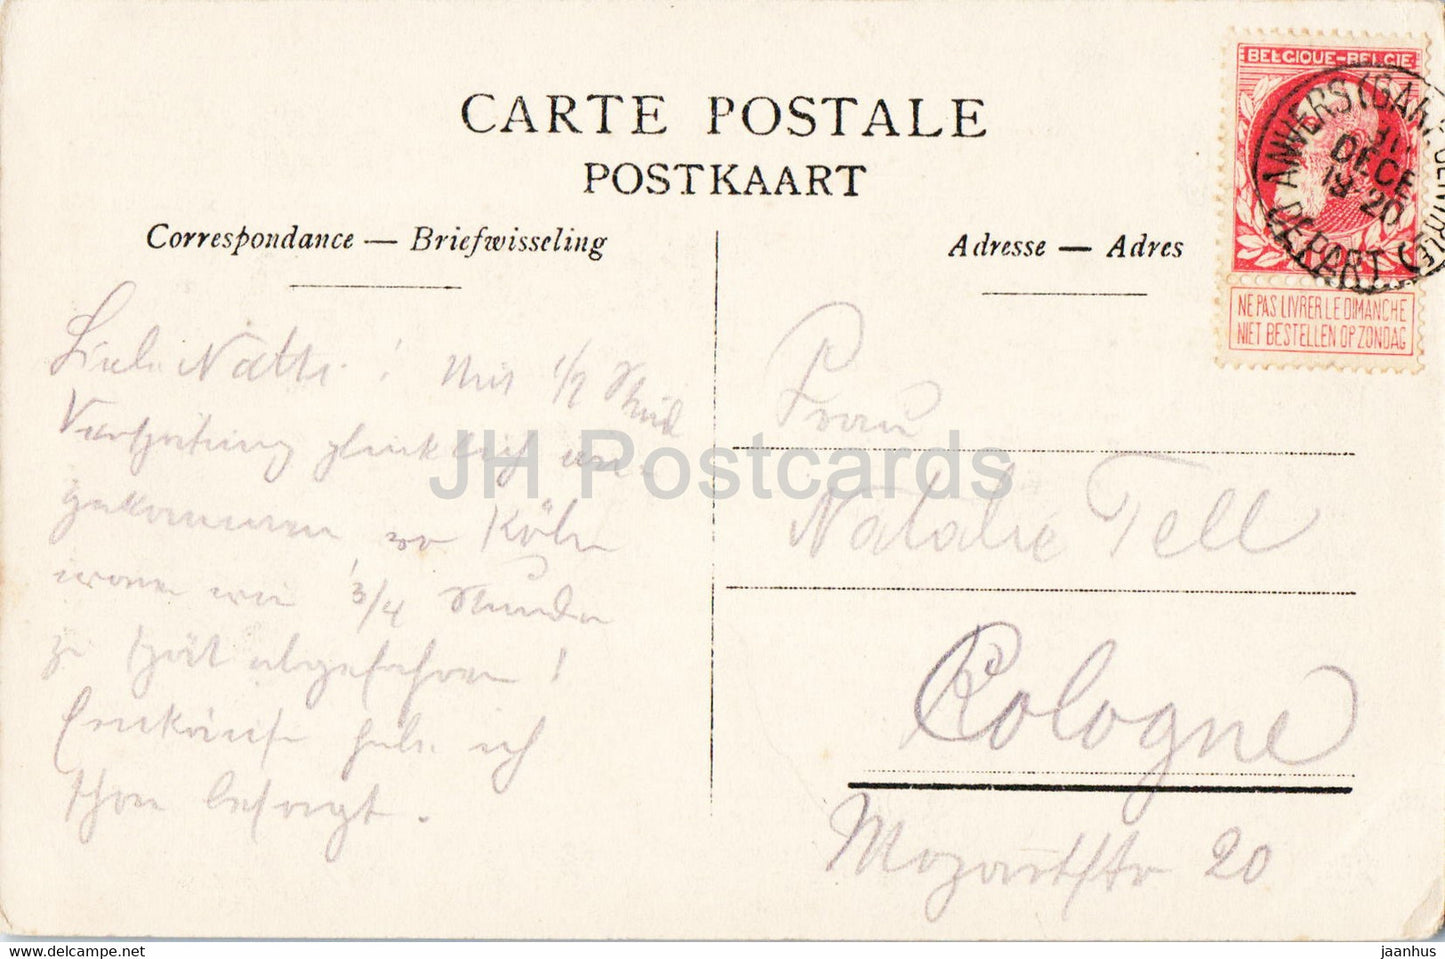 CARTE POSTALE
POSTKAART
Correspondance — Briefwisseling
Adresse — Adres
BELGIQUE-BELGIE
ANVERS (GARE CENTRALE)
DECE
19-20
DEPART
NE PAS LIVRER LE DIMANCHE
NIET BESTELLEN OP ZONDAG
Liebe Natti! Mit 1/2 Stund
Verspätung glücklich an-
gekommen, von Köln
waren wir 3/4 Stunden
zu spät abgefahren!
Einkäufe habe ich
schon besorgt.
Frau
Natalie Tell
Cologne
Mozartstr 20
JH Postcards
https://www.delcampe.net
jaanhus